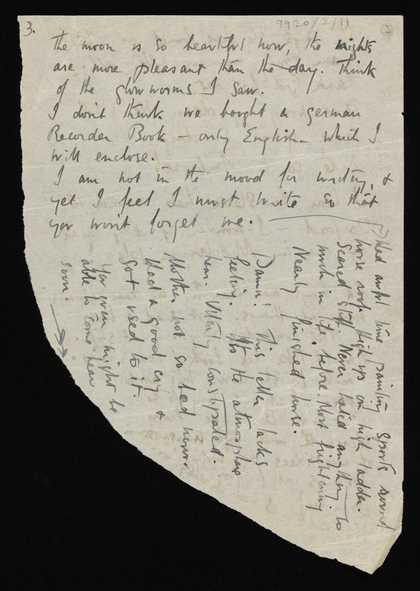 3.
9920/2/11
the moon is so beautiful now, the nights
are more pleasant than the day. Think
of the glow worms I saw.
I don't think we bought a german
Recorder Book – only English – which I
will enclose.
I am not in the mood for writing, &
yet I feel I must write so that
you wont forget me.
Had awful time painting Sports round
horse rock. High up on high ladder.
Scared stiff. Never hated anything so
much in life before. Most frightening
Nearly finished horse.
Damn! This letter lacks
feeling. Its the atmosphere
here. Utterly constipated.
Mother not so bad now.
Had a good cry &
got used to it.
You given might be
able to come here
soon.